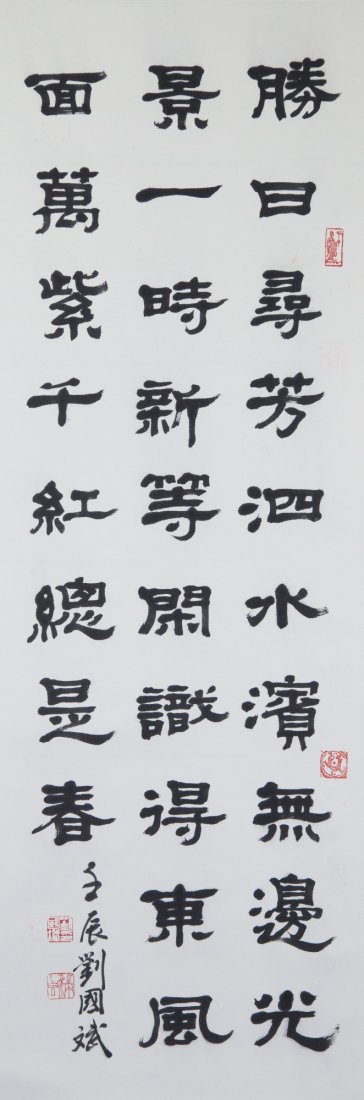 勝日尋芳泗水濱無邊光
景一時新等閑識得東風
面萬紫千紅總是春
壬辰劉國斌